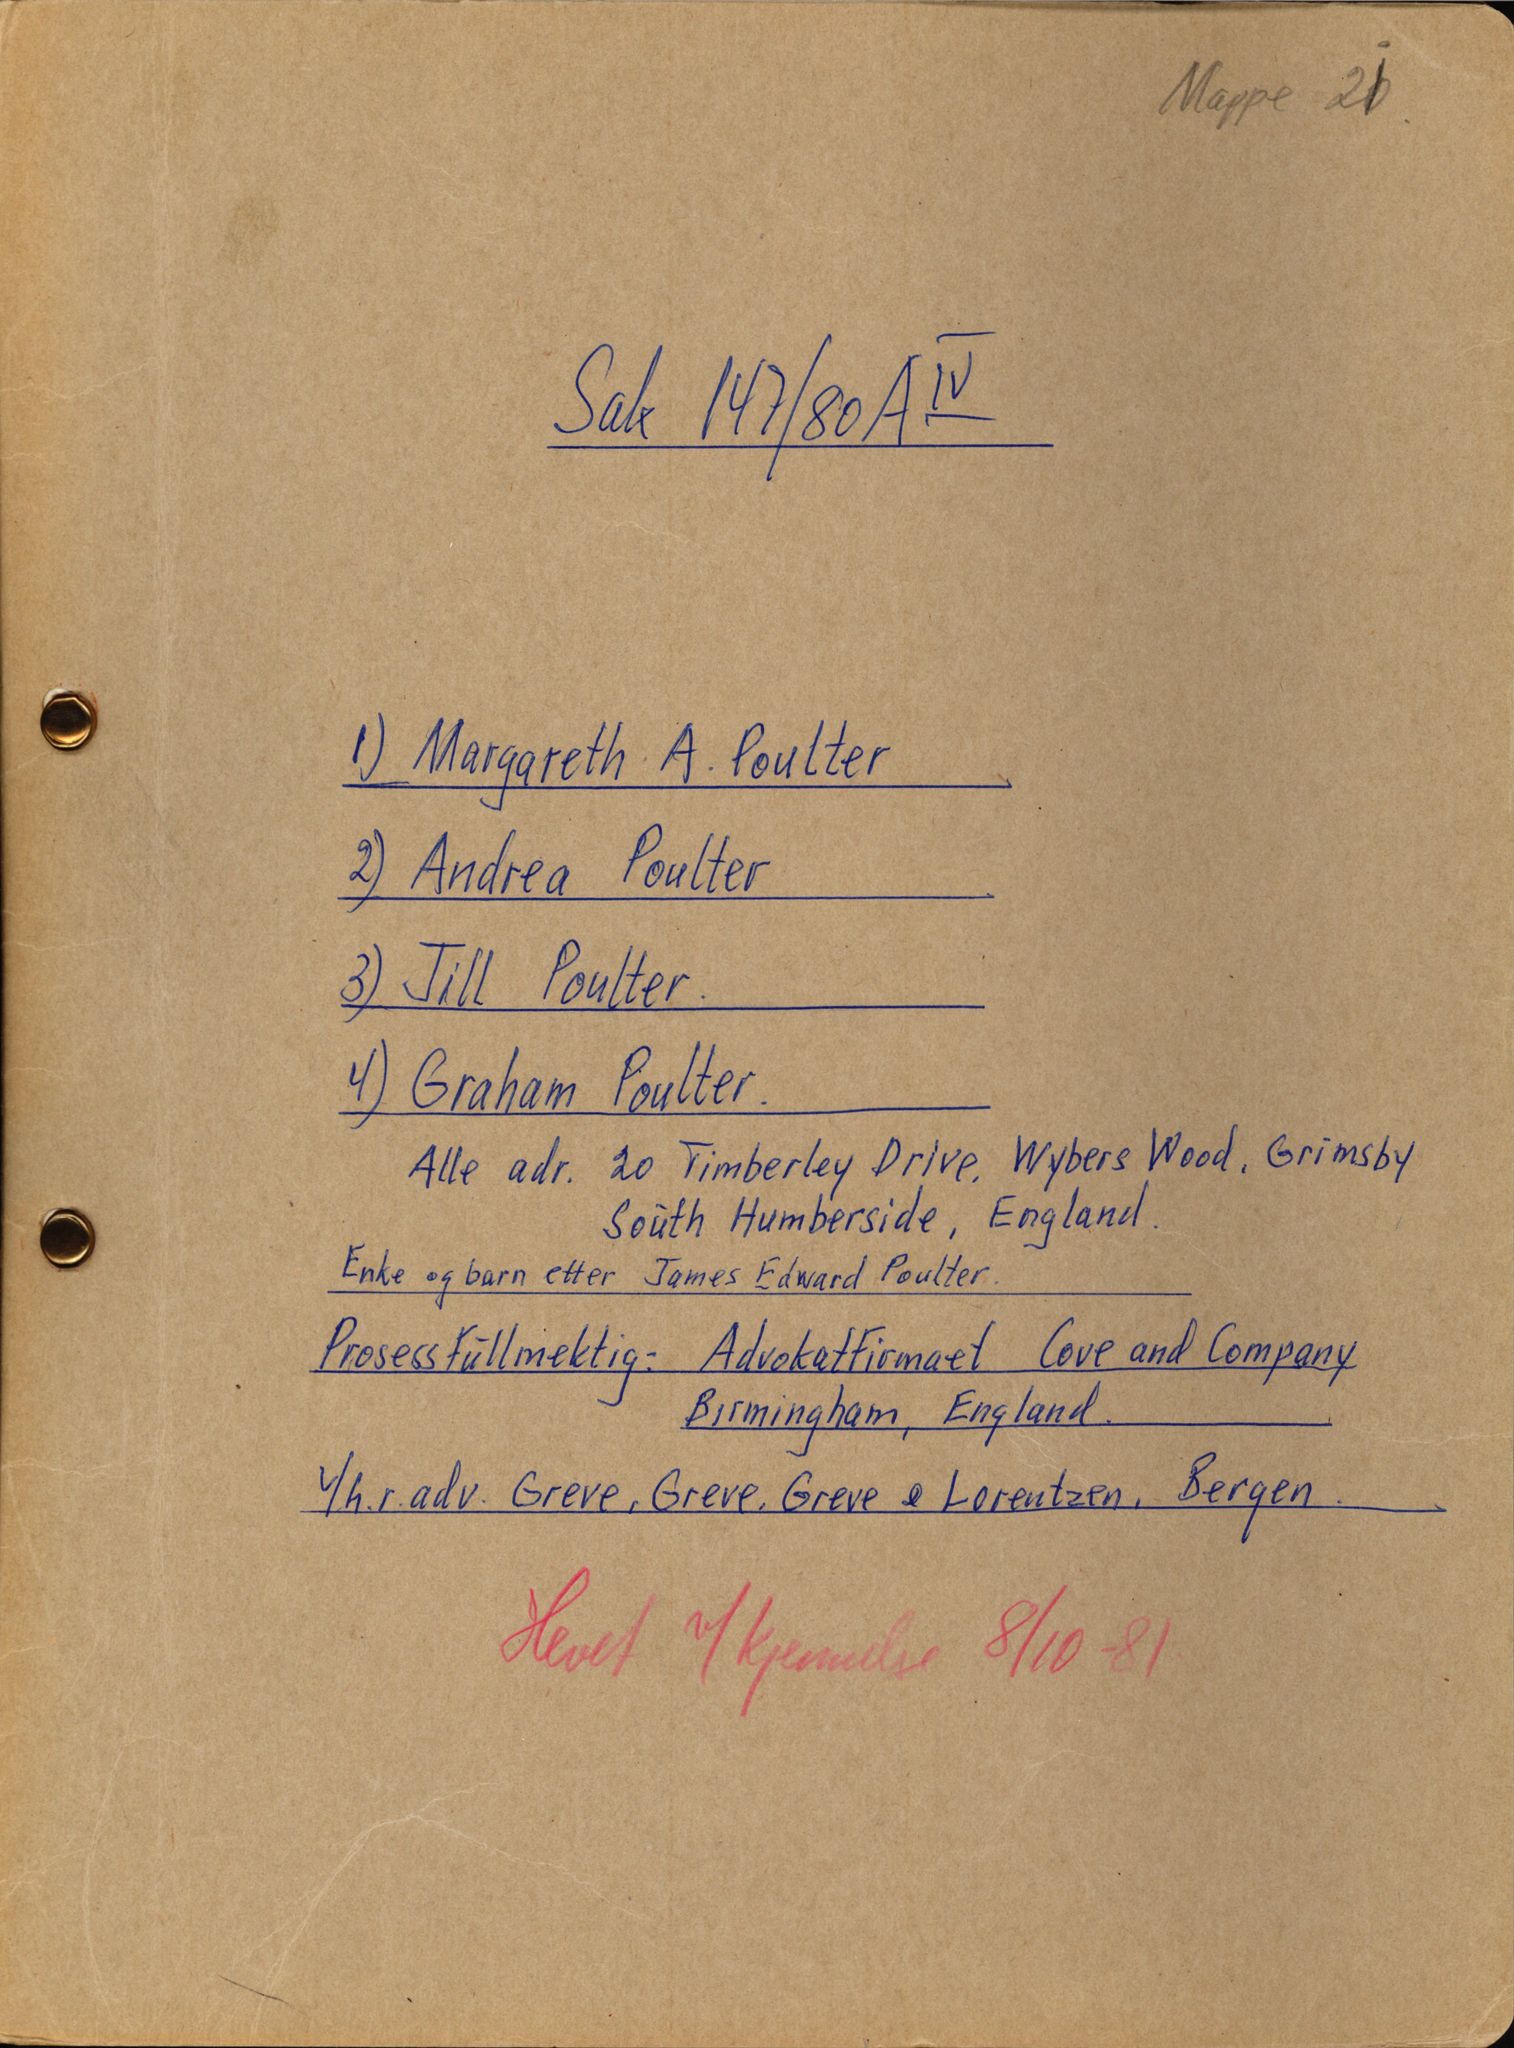 Mappe
Sak 147/80 A IV
1) Margareth A. Poulter
2) Andrea Poulter
3) Jill Poulter.
4) Graham Poulter.
Alle adr. 20 Timberley Drive, Wybers Wood, Grimsby
South Humberside, England.
Enke og barn etter James Edward Poulter.
Prosessfüllmektig: Advokatfirmaet Cove and Company
Birmingham, England.
v/h.r.adv. Greve, Greve, Greve & Lorentzen, Bergen.
Hevet v/kjennelse 8/10-81